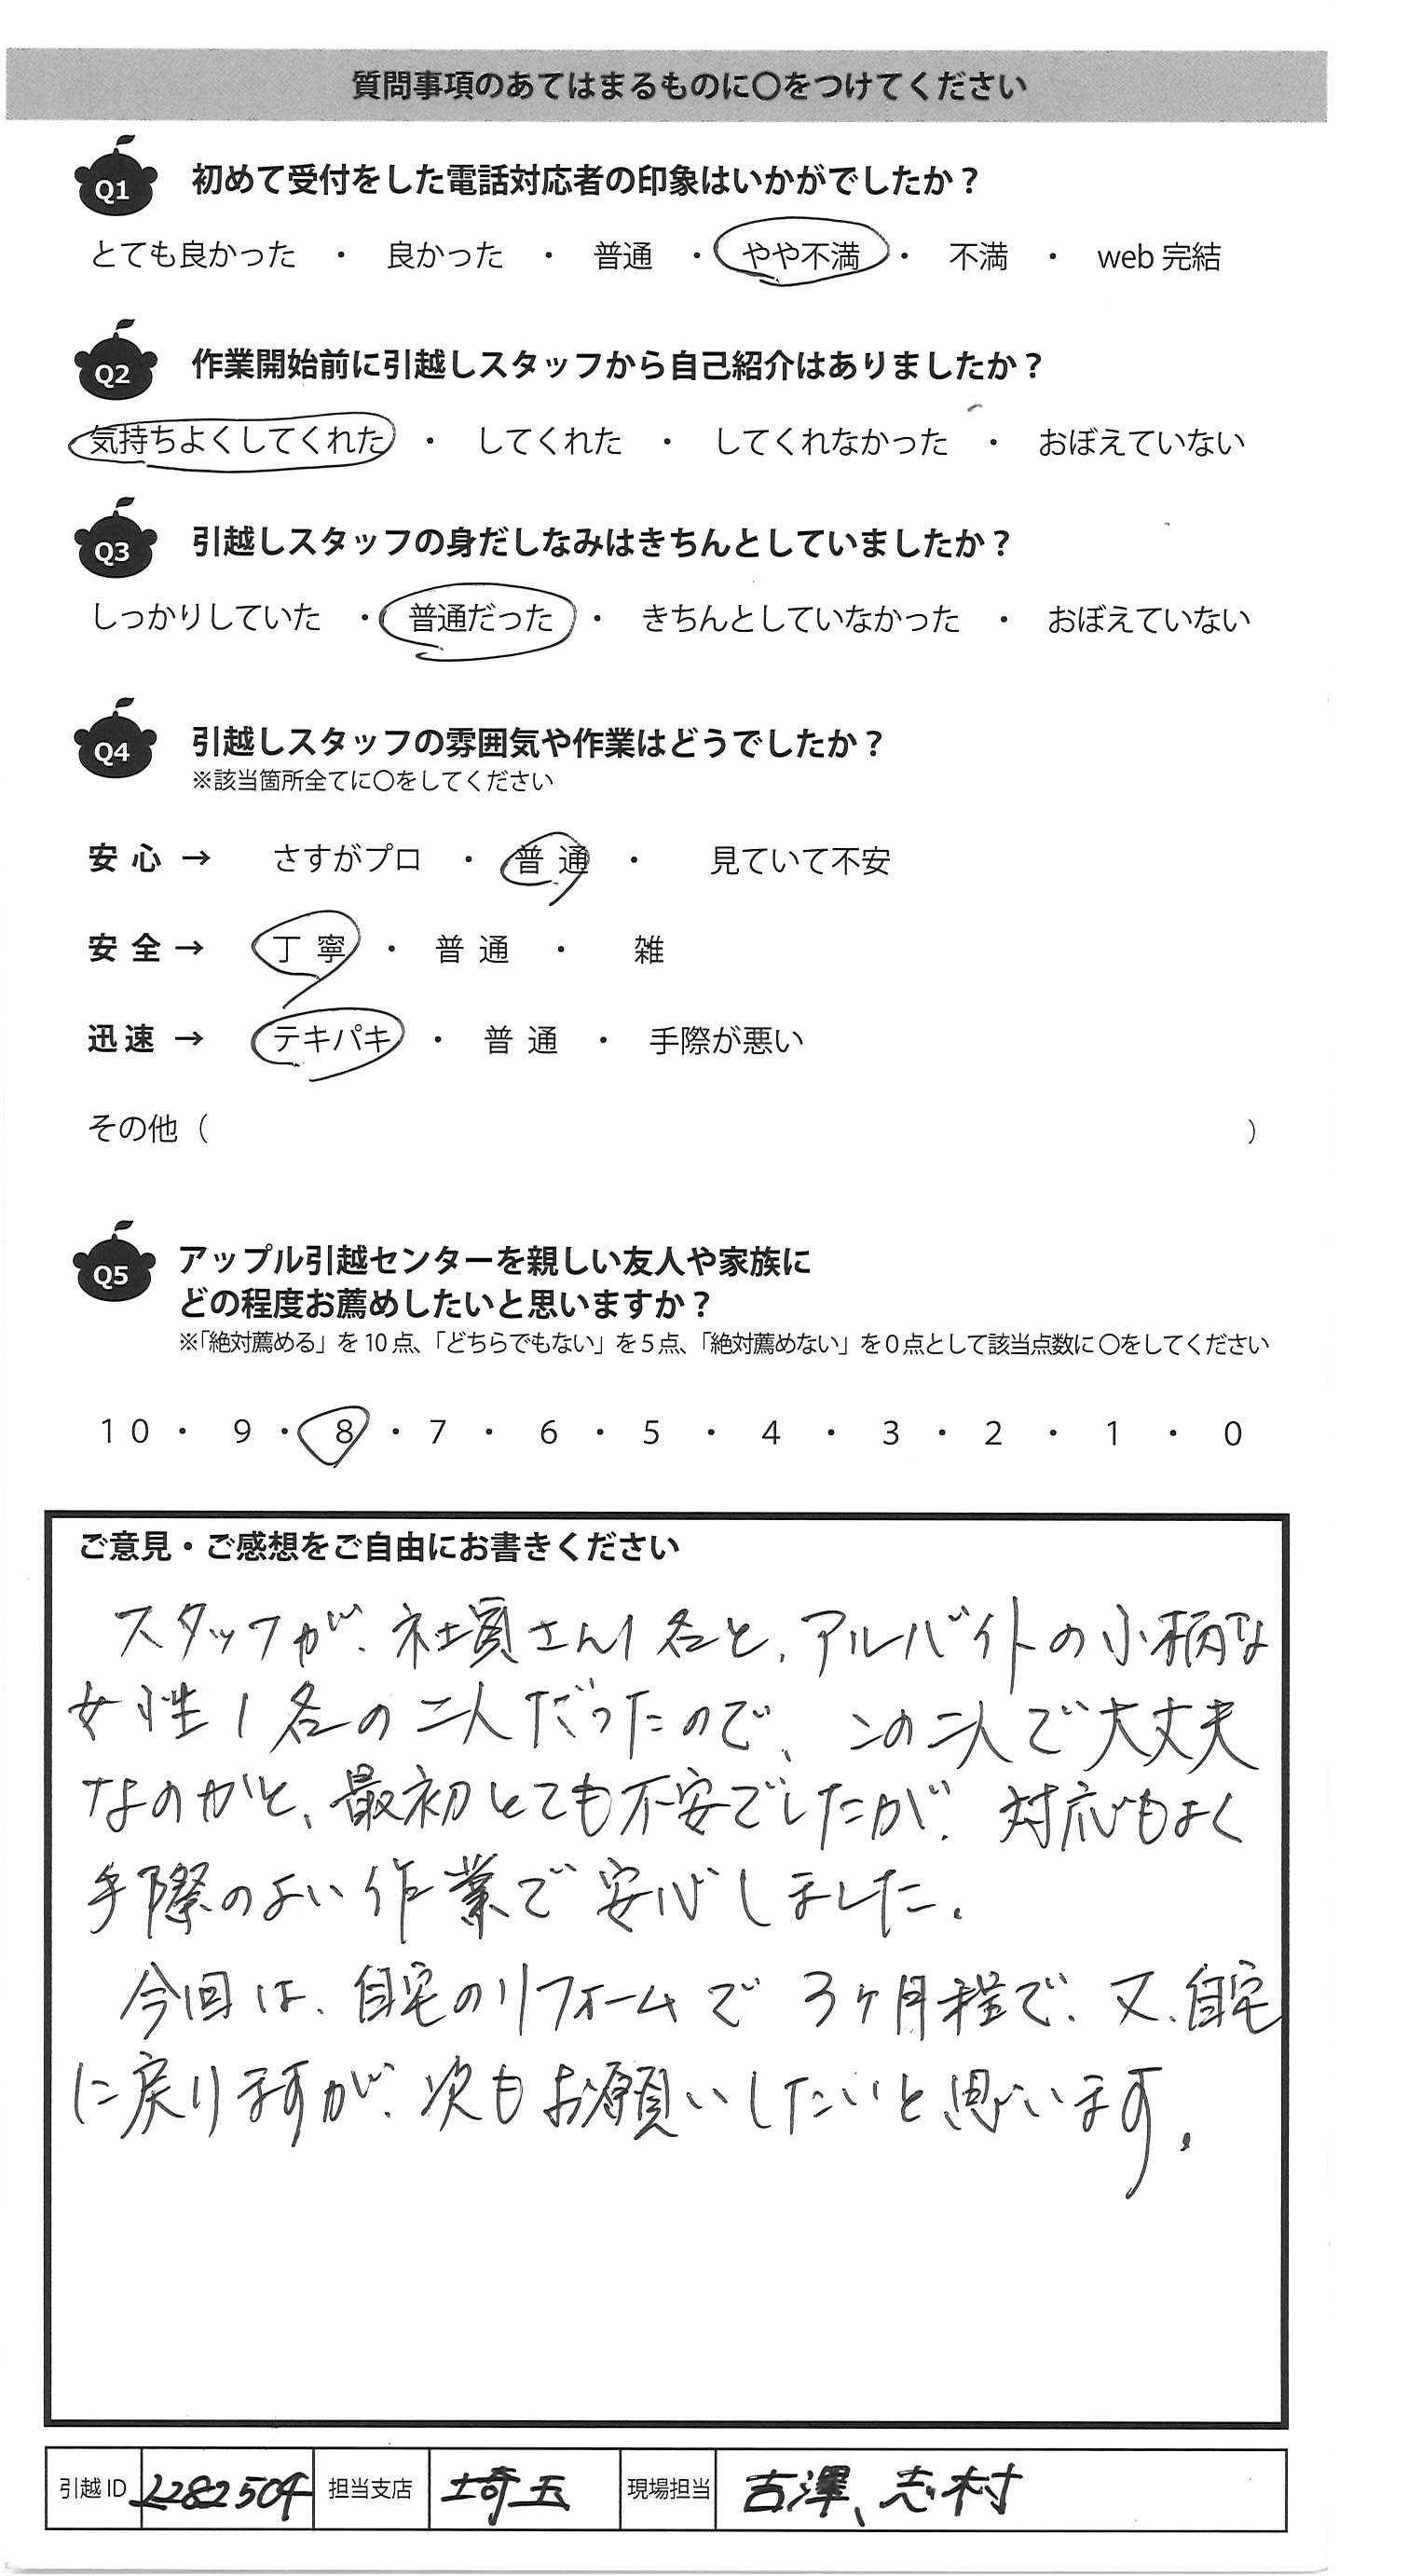 質問事項のあてはまるものに〇をつけてください
Q1 初めて受付をした電話対応者の印象はいかがでしたか？
とても良かった ・ 良かった ・ 普通 ・ やや不満 ・ 不満 ・ web 完結
Q2 作業開始前に引越しスタッフから自己紹介はありましたか？
気持ちよくしてくれた ・ してくれた ・ してくれなかった ・ おぼえていない
Q3 引越しスタッフの身だしなみはきちんとしていましたか？
しっかりしていた ・ 普通だった ・ きちんとしていなかった ・ おぼえていない
Q4 引越しスタッフの雰囲気や作業はどうでしたか？
※該当箇所全てに〇をしてください
安心 → さすがプロ ・ 普通 ・ 見ていて不安
安全 → 丁寧 ・ 普通 ・ 雑
迅速 → テキパキ ・ 普通 ・ 手際が悪い
その他（ ）
Q5 アップル引越センターを親しい友人や家族に
どの程度お薦めしたいと思いますか？
※「絶対薦める」を10点、「どちらでもない」を5点、「絶対薦めない」を0点として該当点数に〇をしてください
10 ・ 9 ・ 8 ・ 7 ・ 6 ・ 5 ・ 4 ・ 3 ・ 2 ・ 1 ・ 0
ご意見・ご感想をご自由にお書きください
スタッフが、社員さん1名と、アルバイトの小柄な
女性1名の二人だったので、この二人で大丈夫
なのかと、最初とても不安でしたが、対応もよく
手際のよい作業で安心しました。
今回は、自宅のリフォームで3ヶ月程で、又、自宅
に戻りますが、次もお願いしたいと思います。
引越ID 2282504 担当支店 埼玉 現場担当 古澤、志村